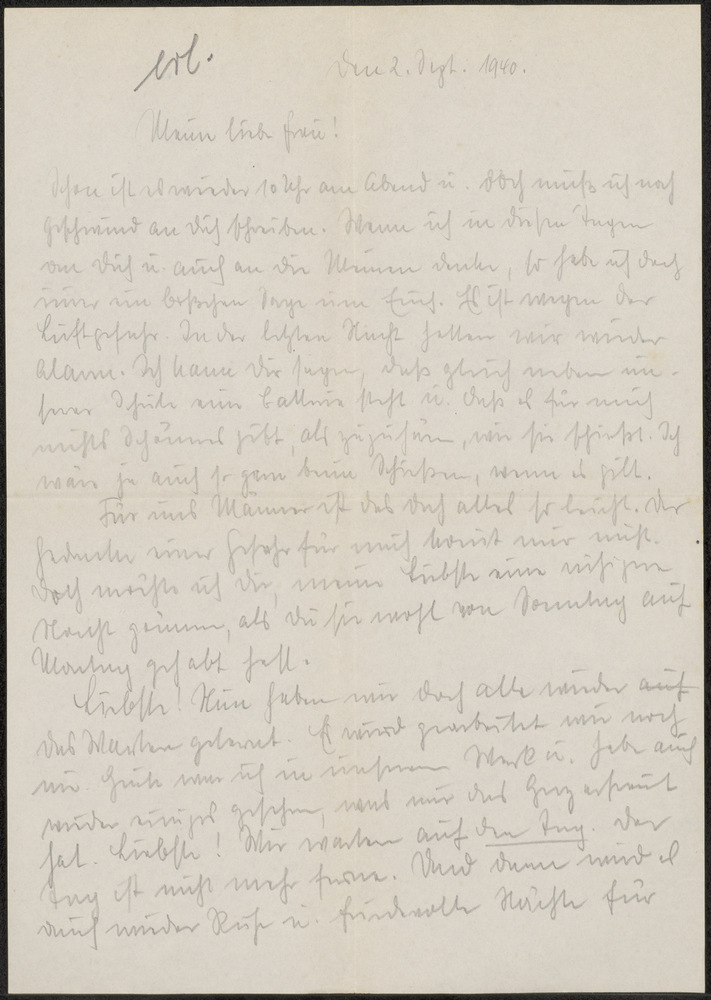 erl.
Den 2. Sept. 1940.
Meine liebe Frau!
Schon ist es wieder 10 Uhr am Abend u. doch muß ich noch
geschwind an Dich schreiben. Wenn ich in diesen Tagen
an Dich u. auch an die Meinen denke, so habe ich doch
immer ein bißchen Sorge um Euch. Es ist wegen der
Luftgefahr. In der letzten Nacht hatten wir wieder
Alarm. Ich kann Dir sagen, daß gleich neben un-
serer Schule eine Batterie steht u. daß es für mich
nichts Schöneres gibt, als zuzuhören, wie sie schießt. Ich
wäre ja auch so gern beim Schießen, wenn es gilt.
Für uns Männer ist das doch alles so leicht. Der
Gedanke einer Gefahr für mich kommt mir nicht.
Doch möchte ich Dir, meine Liebste eine ruhigere
Nacht gönnen, als Du sie wohl von Sonntag auf
Montag gehabt hast.
Liebste! Nun haben wir doch alle wieder auf
das Warten gelernt. Es wird gearbeitet wie noch
nie. Heute war ich in unserem Werk u. habe auch
wieder einiges gesehen, was mir das Herz erfreut
hat. Liebste! Wir warten auf den Tag. Der
Tag ist nicht mehr ferne. Und dann wird es
auch wieder Ruhe u. friedvolle Nächte für